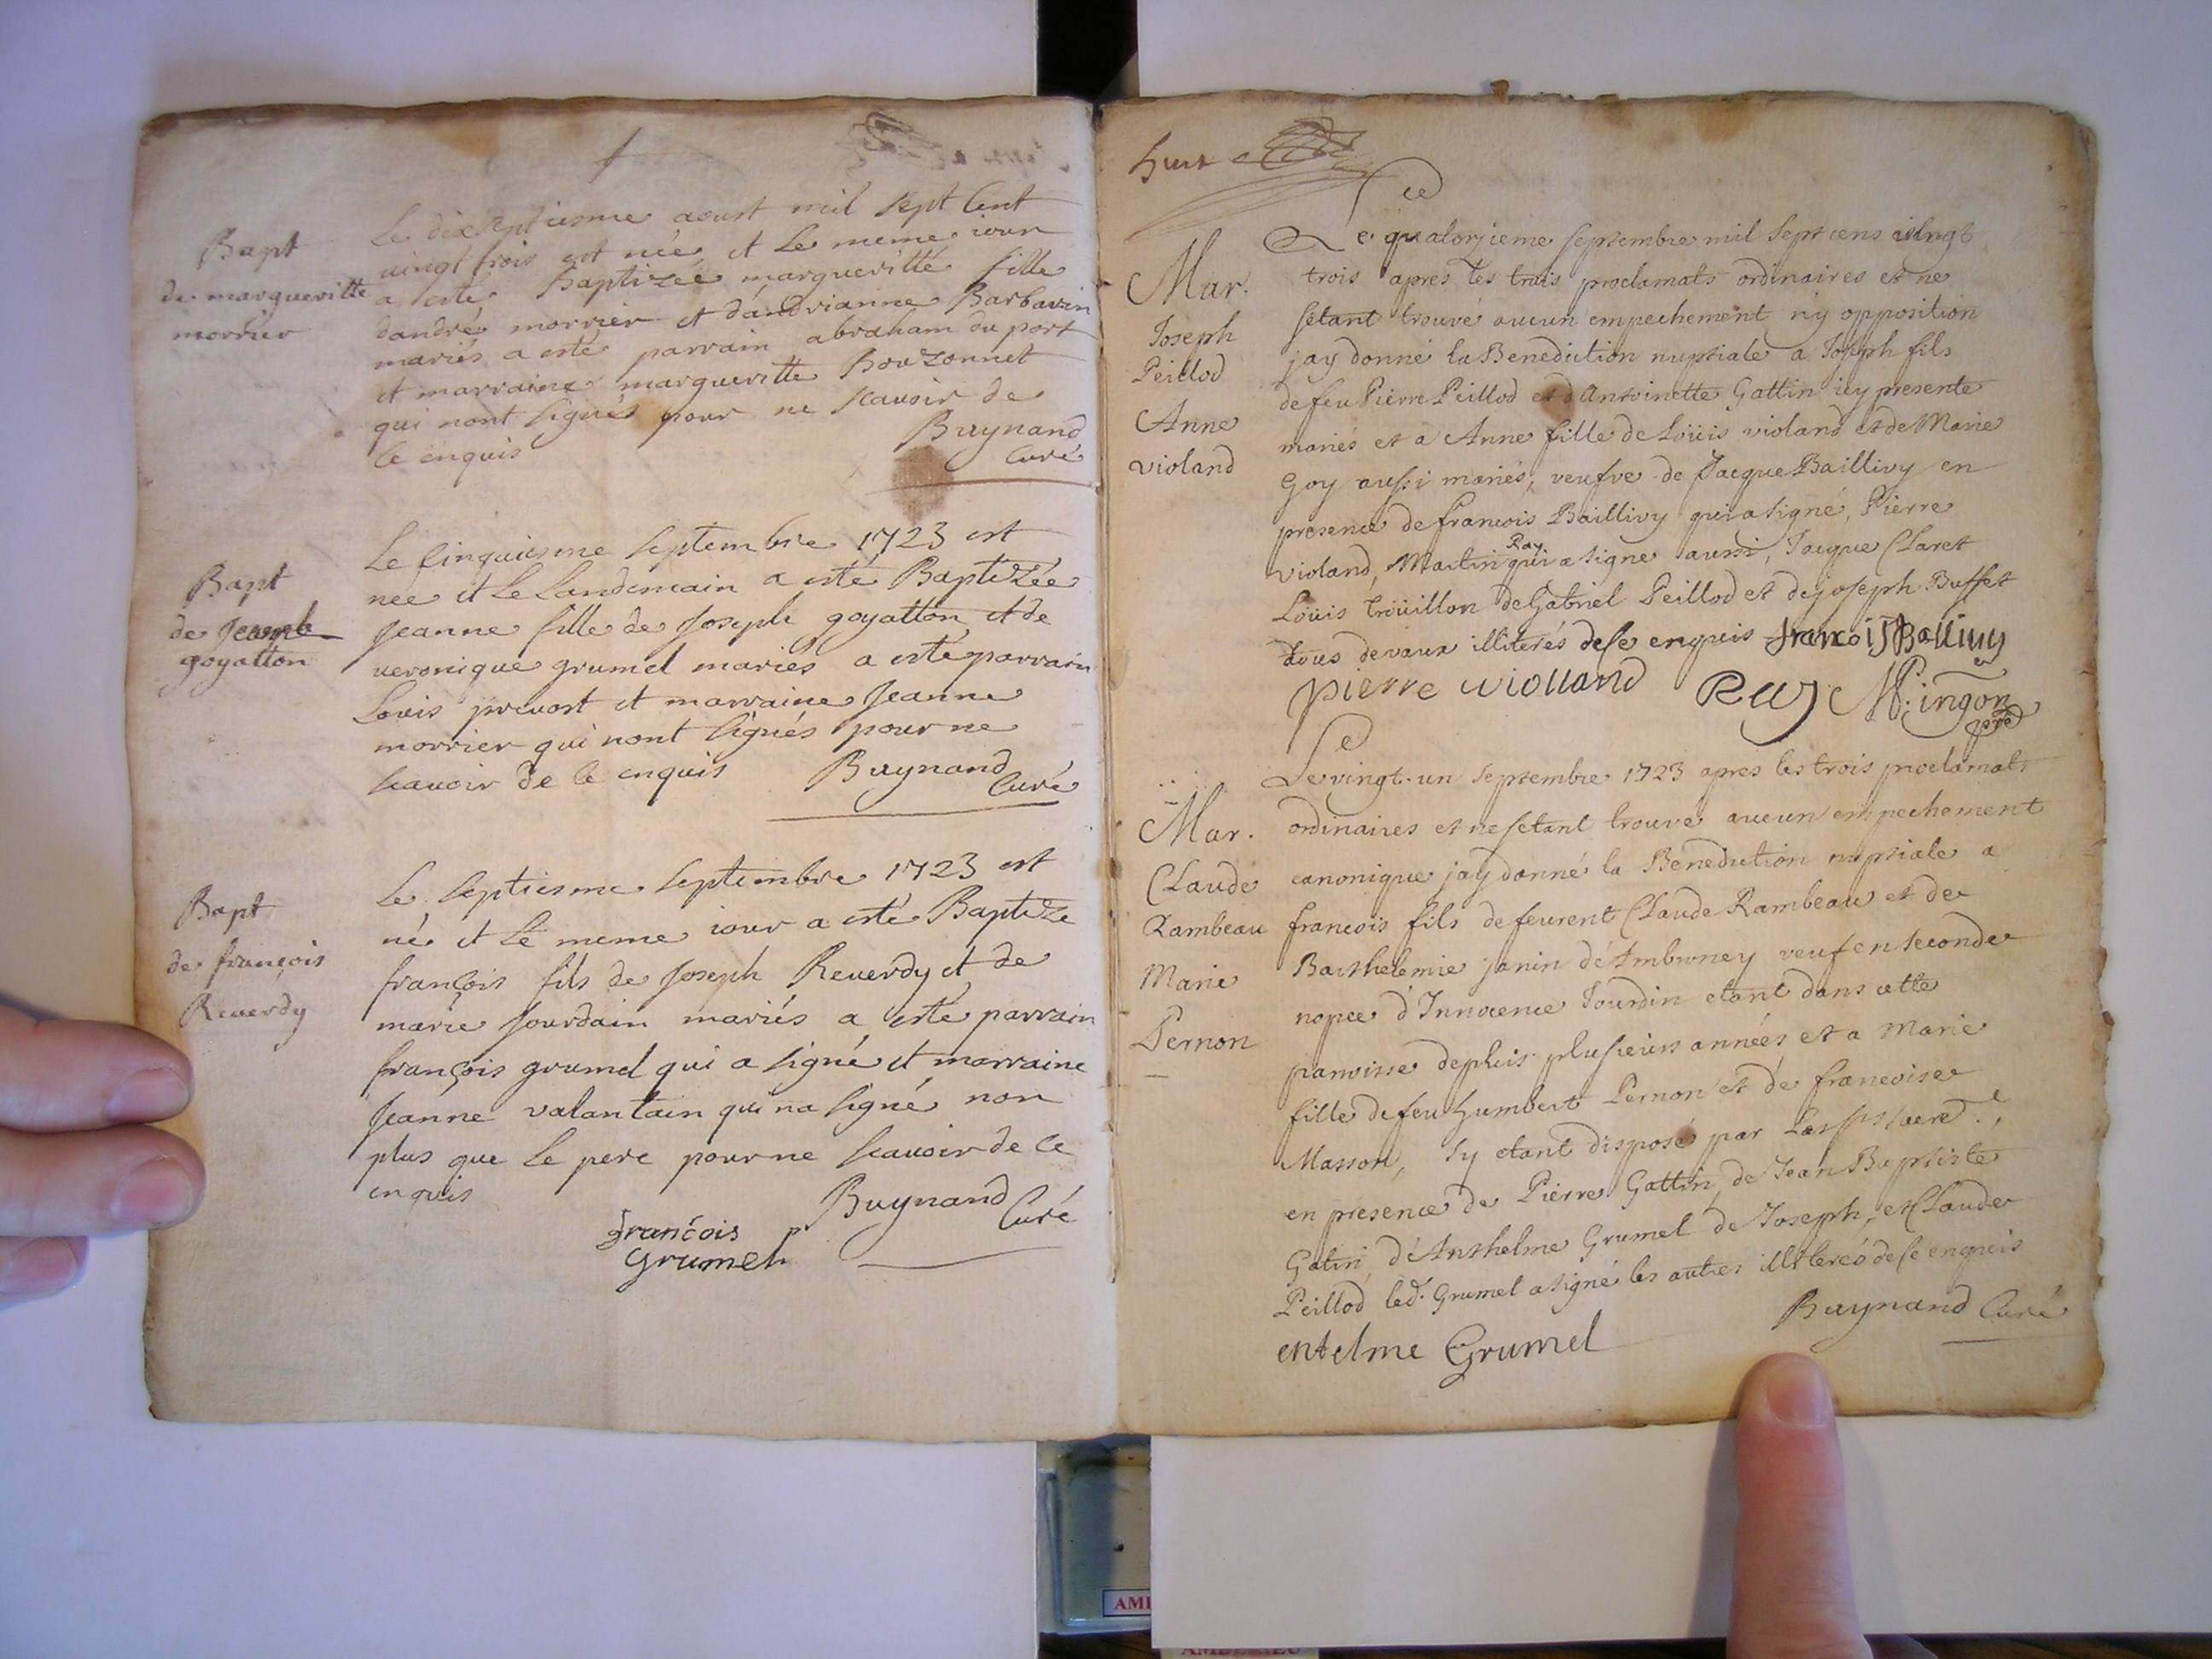 Bapt
de margueritte
morrier
Le dixseptiesme aoust mil sept Cent
uingt trois est née et Le meme iour
a esté Baptizée margueritté fille
dandré morrier et dandrianne Barbarin
mariés a esté parrain abraham du port
et marraine margueritte Bouzonnet
qui nont signés pour ne scauoir de
ce enquis
Buynand
Curé
Bapt
de Jeanne
goyatton
Le Cinquiesme septembre 1723 est
née et Le Landemain a esté Baptizée
Jeanne fille de Joseph goyatton et de
ueronique grumel mariés a esté parrain
Louis preuost et marraine Jeanne
morrier qui nont signés pour ne
scauoir de ce enquis Buynand
Curé
Bapt
de françois
Reuerdy
Le septiesme septembre 1723 est
né et Le meme iour a esté Baptizé
françois fils de Joseph Reuerdy et de
marie Jourdain mariés a esté parrain
françois grumel qui a signé et marraine
Jeanne valantain qui na signé non
plus que Le pere pour ne scauoir de ce
enquis
Buynand
Curé
françois
Grumel
huit
Mar.
Joseph
Peillod
Anne
violand
Le quatorzieme septembre mil sept cens vingt
trois apres les trois proclamats ordinaires et ne
sétant trouvé aucun empechement ny opposition
jay donné la Benediction nuptiale a Joseph fils
de feu Pierre Peillod et d'Antoinette Gattin icy presente
mariés et a Anne fille de Loüis violand et de Marie
Goy aussi mariés, veufve de Jacque Baillivy en
presence de francois Baillivy qui a signé, Pierre
violand, Martin Ray qui a signe aussi, Jacque Claret
Loüis Troüillon de Gabriel Peillod et de joseph Buffet
tous devaux illiterés de ce enquis francois Balliuy
pierre uiolland Ray M. ingon
Le vingt-un septembre 1723 apres les trois proclamats
Mar.
Claude
Rambeau
Marie
Pernon
ordinaires et ne setant trouve aucun empechement
canonique jay donné la Benediction nuptiale a
francois fils de feurent Claude Rambeau et de
Barthelemie janin d'Ambroney veuf en seconde
nopce d'Innocence Jourdin etant dans cette
parroisse depuis plusieurs années et a Marie
fille de feu humbert Pernon et de francoise
Masson, sy etant disposé par
en presence de Pierre Gattin, de Jean Baptiste
Gatin d'Anthelme Grumel de Joseph, et Claude
Peillod led. Grumel a signé les autres illiterés de ce enquis
Buynand Curé
entelme Grumel
AMB